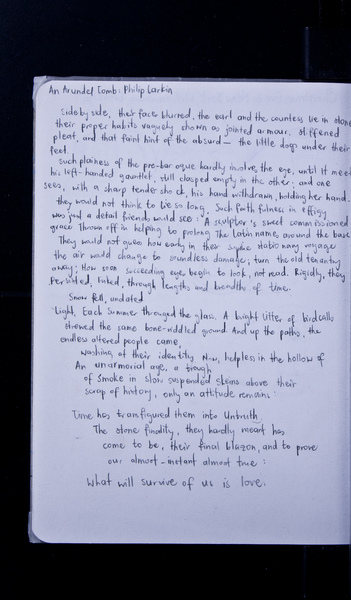 An Arundel Tomb: Philip Larkin
Side by side, their face blurred, the earl and the countess lie in stone
their proper habits vaguely shown as jointed armour, stiffened
pleat, and that faint hint of the absurd – the little dogs under their
feet.
Such plainess of the pre-baroque hardly involve, the eye, until it meet
his left-handed gauntlet, still clasped empty in the other: and one
sees, with a sharp tender shock, his hand withdrawn, holding her hand.
they would not think to lie so long. Such faithfulness in effigy
was just a detail friends would see: A sculptor's sweet commissioned
grace Thrown off in helping to prolong The Latin name, around the base
They would not guess how early in their supine stationary voyage
the air would change to soundless damage, turn the old tenantry
away; How soon succeeding eye, begin to look, not read. Rigidly, they
Persisted, linked, through lengths and breadths of time.
Snow fell, undated
Light, Each Summer thronged the glass. A bright litter of birdcalls
strewed the same bone-riddled ground. And up the paths, the
endless altered people came,
washing at their identity Now, helpless in the hollow of
An unarmorial age, a trough
of smoke in slow suspended skeins above their
scrap of history, only an attitude remains:
Time has transfigured them into Untruth.
The stone finality, they hardly meant has
come to be, their final blazon, and to prove
our almost-instant almost true:
What will survive of us is love.